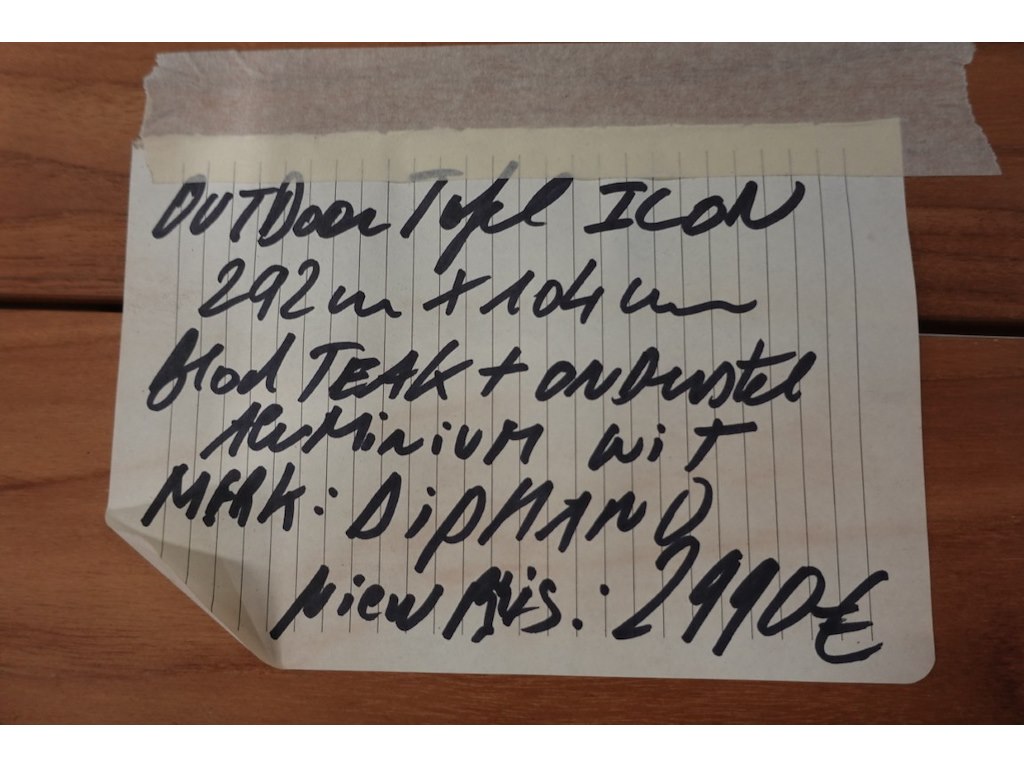 OUTDOOR Tafel ICON
292 cm x 104 cm
blad TEAK + ONDERstel
AluMiNiUM wiT
MERK: DiPHANO
Niew PRijs: 2990€